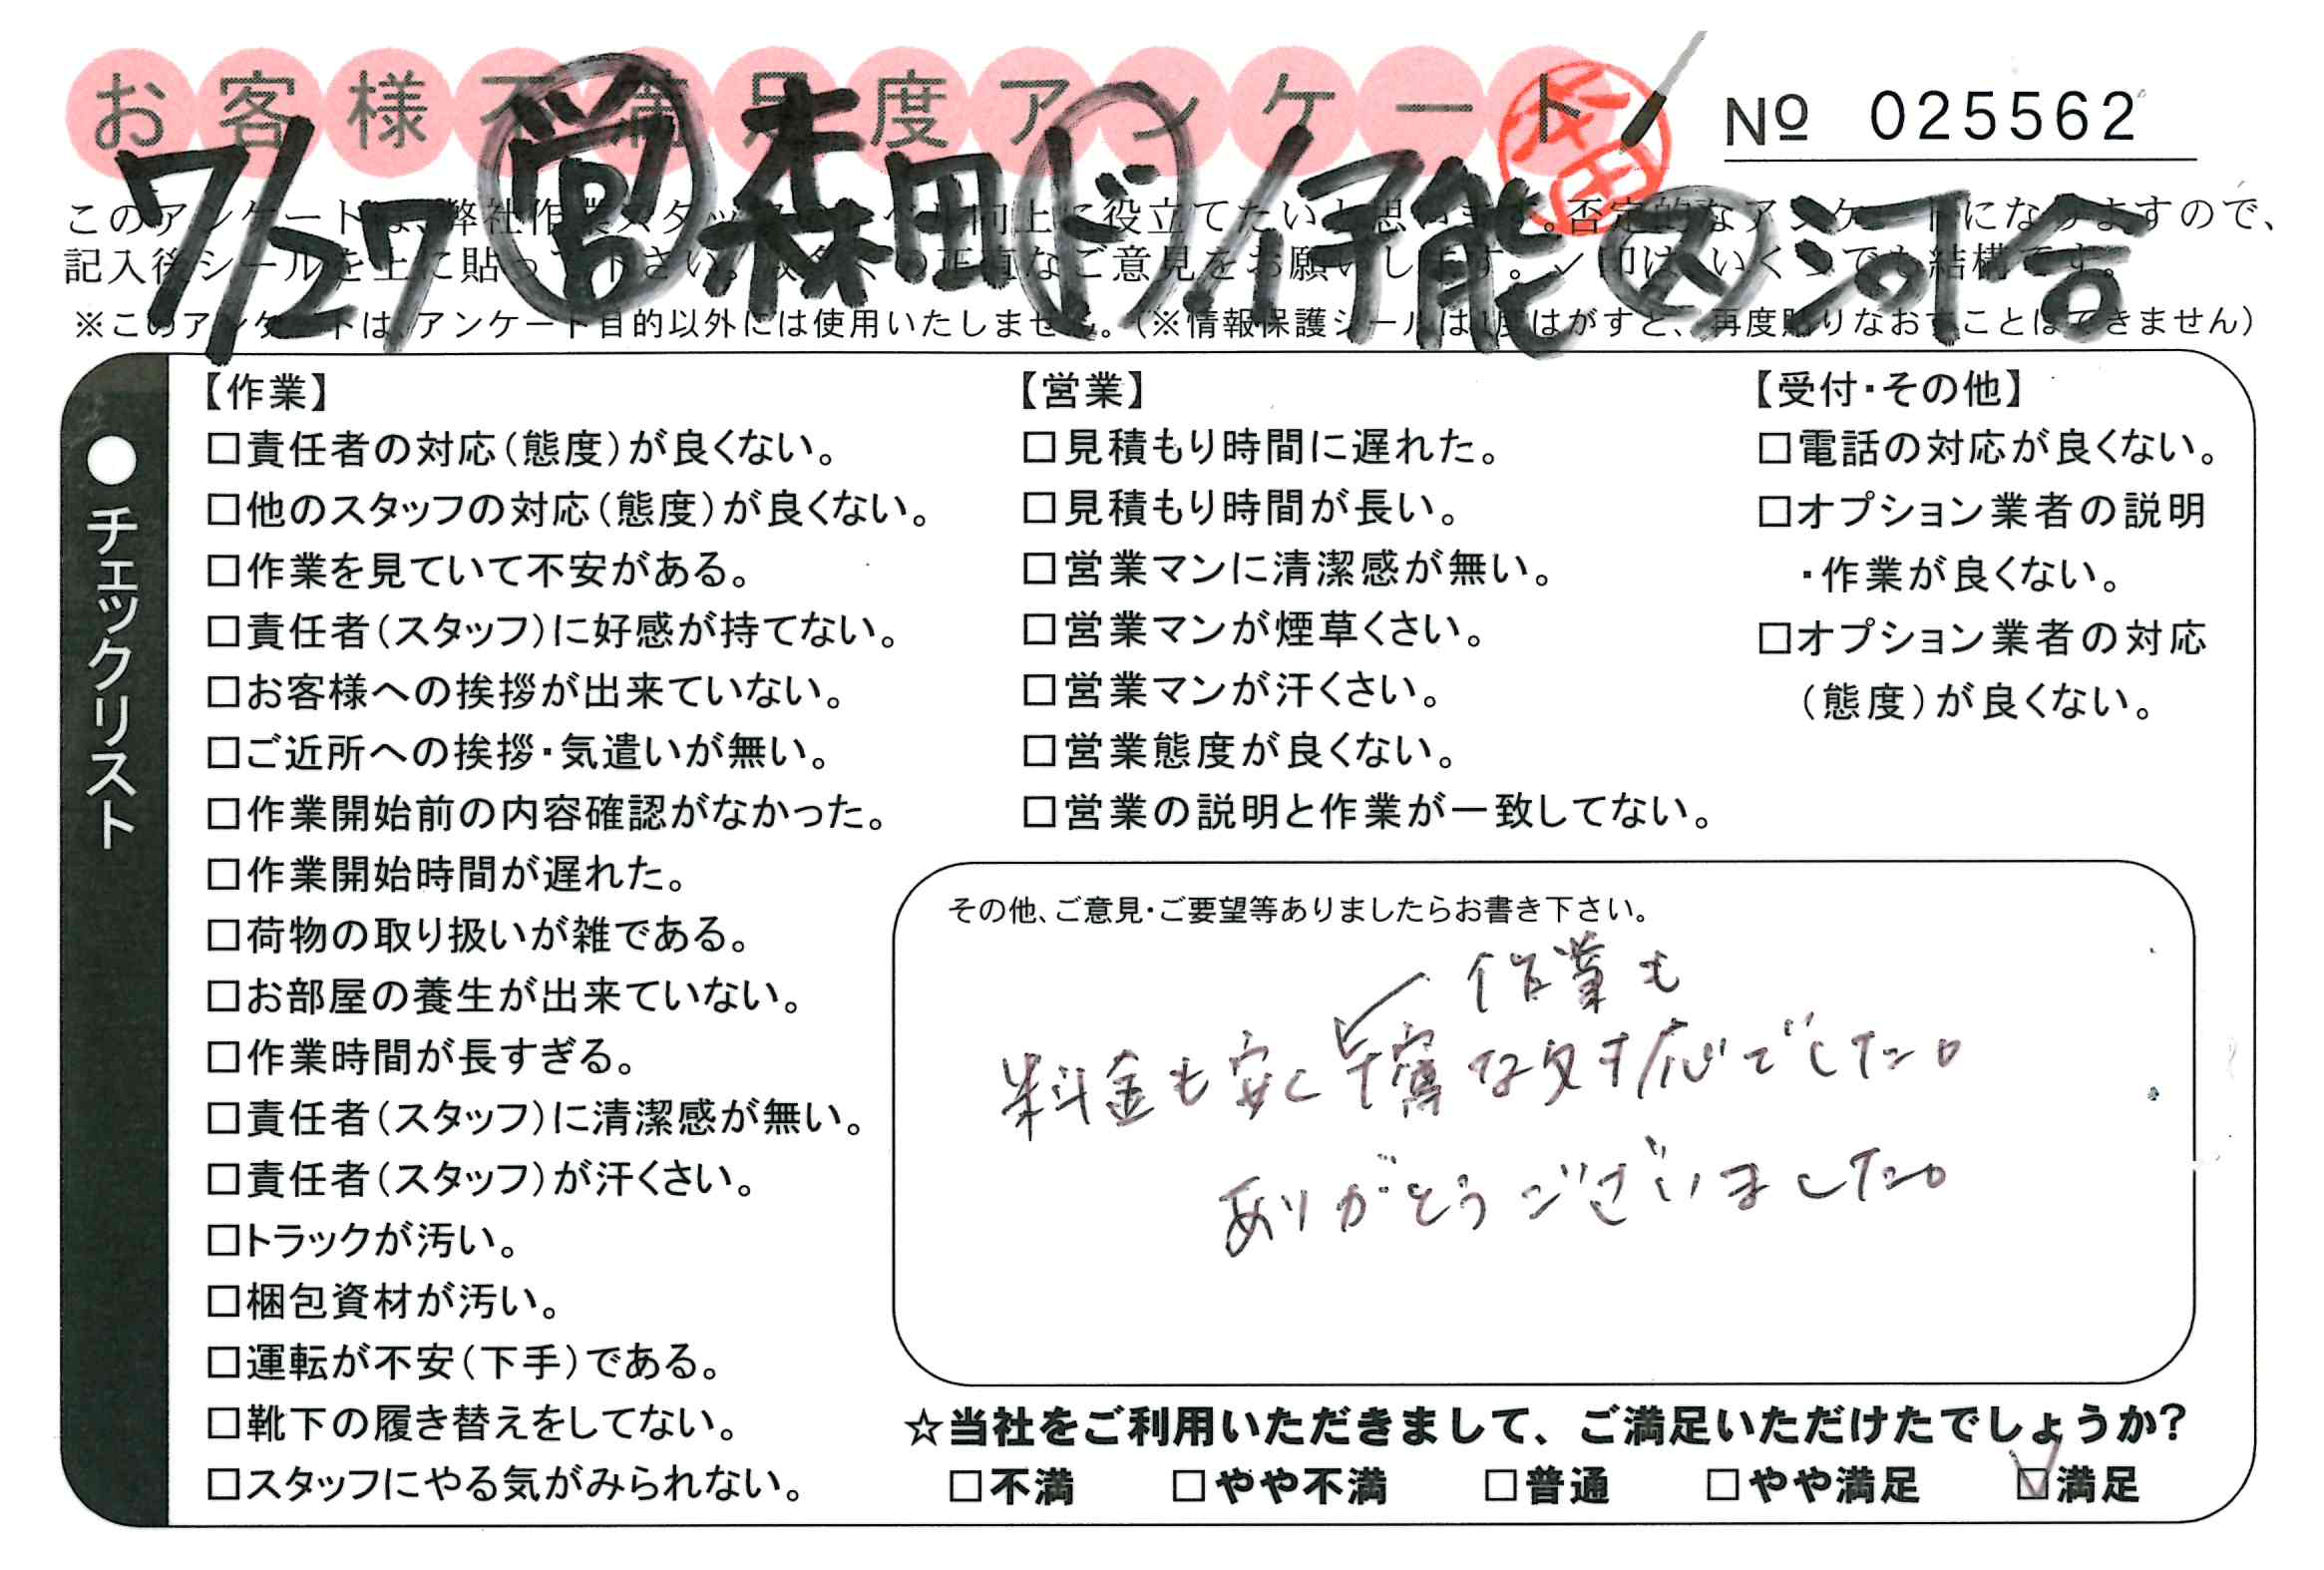 お客様不満足度アンケート
No 025562
7/27 営 森田 ド 伊能 ス 河合
このアンケートは、弊社作業スタッフの 向上に役立てたいと思います。否定的なアンケートになりますので、
記入後シールを上に貼って下さい。 正直なご意見をお願いします。✓印はいくつでも結構です。
※このアンケートは、アンケート目的以外には使用いたしません。(※情報保護シールは1度はがすと、再度貼りなおすことはできません)
●チェックリスト
【作業】
□責任者の対応(態度)が良くない。
□他のスタッフの対応(態度)が良くない。
□作業を見ていて不安がある。
□責任者(スタッフ)に好感が持てない。
□お客様への挨拶が出来ていない。
□ご近所への挨拶・気遣いが無い。
□作業開始前の内容確認がなかった。
□作業開始時間が遅れた。
□荷物の取り扱いが雑である。
□お部屋の養生が出来ていない。
□作業時間が長すぎる。
□責任者(スタッフ)に清潔感が無い。
□責任者(スタッフ)が汗くさい。
□トラックが汚い。
□梱包資材が汚い。
□運転が不安(下手)である。
□靴下の履き替えをしてない。
□スタッフにやる気がみられない。
【営業】
□見積もり時間に遅れた。
□見積もり時間が長い。
□営業マンに清潔感が無い。
□営業マンが煙草くさい。
□営業マンが汗くさい。
□営業態度が良くない。
□営業の説明と作業が一致してない。
【受付・その他】
□電話の対応が良くない。
□オプション業者の説明
・作業が良くない。
□オプション業者の対応
(態度)が良くない。
その他、ご意見・ご要望等ありましたらお書き下さい。
作業も
料金も安く丁寧な対応でした。
ありがとうございました。
☆当社をご利用いただきまして、ご満足いただけたでしょうか?
□不満 □やや不満 □普通 □やや満足 ☑満足